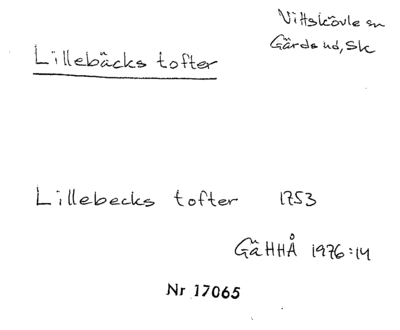 Vittskövle sn
Gärds hd, Sk
Lillebäcks tofter
Lillebecks tofter 1753
GäHHÅ 1976:14
Nr 17065